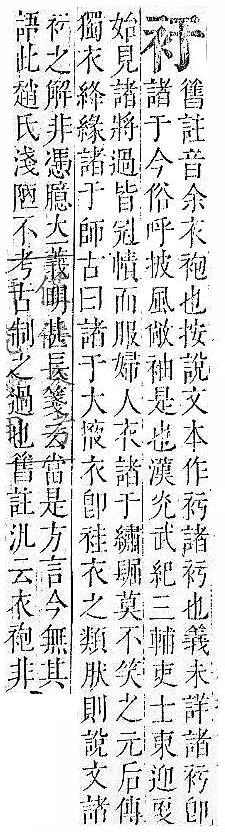 衧
舊註音余衣袍也按說文本作衧諸衧也義未詳諸衧卽
諸于今俗呼披風敞袖是也漢光武紀三輔吏士東迎更
始見諸將過皆冠幘而服婦人衣諸于繡镼莫不笑之元后傳
獨衣絳緣諸于師古曰諸于大掖衣卽袿衣之類肰則說文諸
衧之解非憑臆大義明甚長箋云當是方言今無其
語此趙氏淺陋不考古制之過也舊註汎云衣袍非